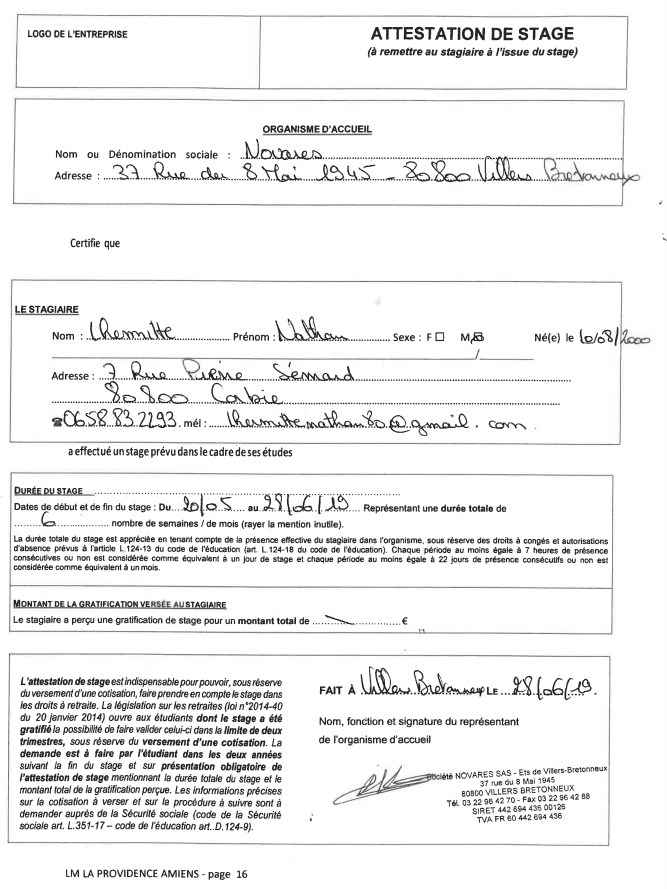 LOGO DE L'ENTREPRISE
ATTESTATION DE STAGE
(à remettre au stagiaire à l'issue du stage)
ORGANISME D'ACCUEIL
Nom ou Dénomination sociale : Novares
Adresse : 37 Rue du 8 Mai 1945 - 80800 Villers Bretonneux
Certifie que
LE STAGIAIRE
Nom : Lhermitte Prénom : Nathan Sexe : F ☐ M ☒ Né(e) le 10/08/2000
Adresse : 7 Rue Pierre Sémard
80800 Corbie
☎0658.83.2293. mél : lhermitte.nathan80@gmail.com
a effectué un stage prévu dans le cadre de ses études
DURÉE DU STAGE
Dates de début et de fin du stage : Du 20/05 au 28/06/19 Représentant une durée totale de
6 nombre de semaines / de mois (rayer la mention inutile).
La durée totale du stage est appréciée en tenant compte de la présence effective du stagiaire dans l'organisme, sous réserve des droits à congés et autorisations
d'absence prévus à l'article L.124-13 du code de l'éducation (art. L.124-18 du code de l'éducation). Chaque période au moins égale à 7 heures de présence
consécutives ou non est considérée comme équivalente à un jour de stage et chaque période au moins égale à 22 jours de présence consécutifs ou non est
considérée comme équivalent à un mois.
MONTANT DE LA GRATIFICATION VERSÉE AU STAGIAIRE
Le stagiaire a perçu une gratification de stage pour un montant total de ........ €
L'attestation de stage est indispensable pour pouvoir, sous réserve
du versement d'une cotisation, faire prendre en compte le stage dans
les droits à retraite. La législation sur les retraites (loi n°2014-40
du 20 janvier 2014) ouvre aux étudiants dont le stage a été
gratifié la possibilité de faire valider celui-ci dans la limite de deux
trimestres, sous réserve du versement d'une cotisation. La
demande est à faire par l'étudiant dans les deux années
suivant la fin du stage et sur présentation obligatoire de
l'attestation de stage mentionnant la durée totale du stage et le
montant total de la gratification perçue. Les informations précises
sur la cotisation à verser et sur la procédure à suivre sont à
demander auprès de la Sécurité sociale (code de la Sécurité
sociale art. L.351-17 – code de l'éducation art..D.124-9).
FAIT À Villers Bretonneux LE 28/06/19.
Nom, fonction et signature du représentant
de l'organisme d'accueil
Société NOVARES SAS - Ets de Villers-Bretonneux
37 rue du 8 Mai 1945
80800 VILLERS BRETONNEUX
Tél. 03 22 96 42 70 - Fax 03 22 96 42 88
SIRET 442 694 436 00126
TVA FR 60 442 694 436
LM LA PROVIDENCE AMIENS - page 16